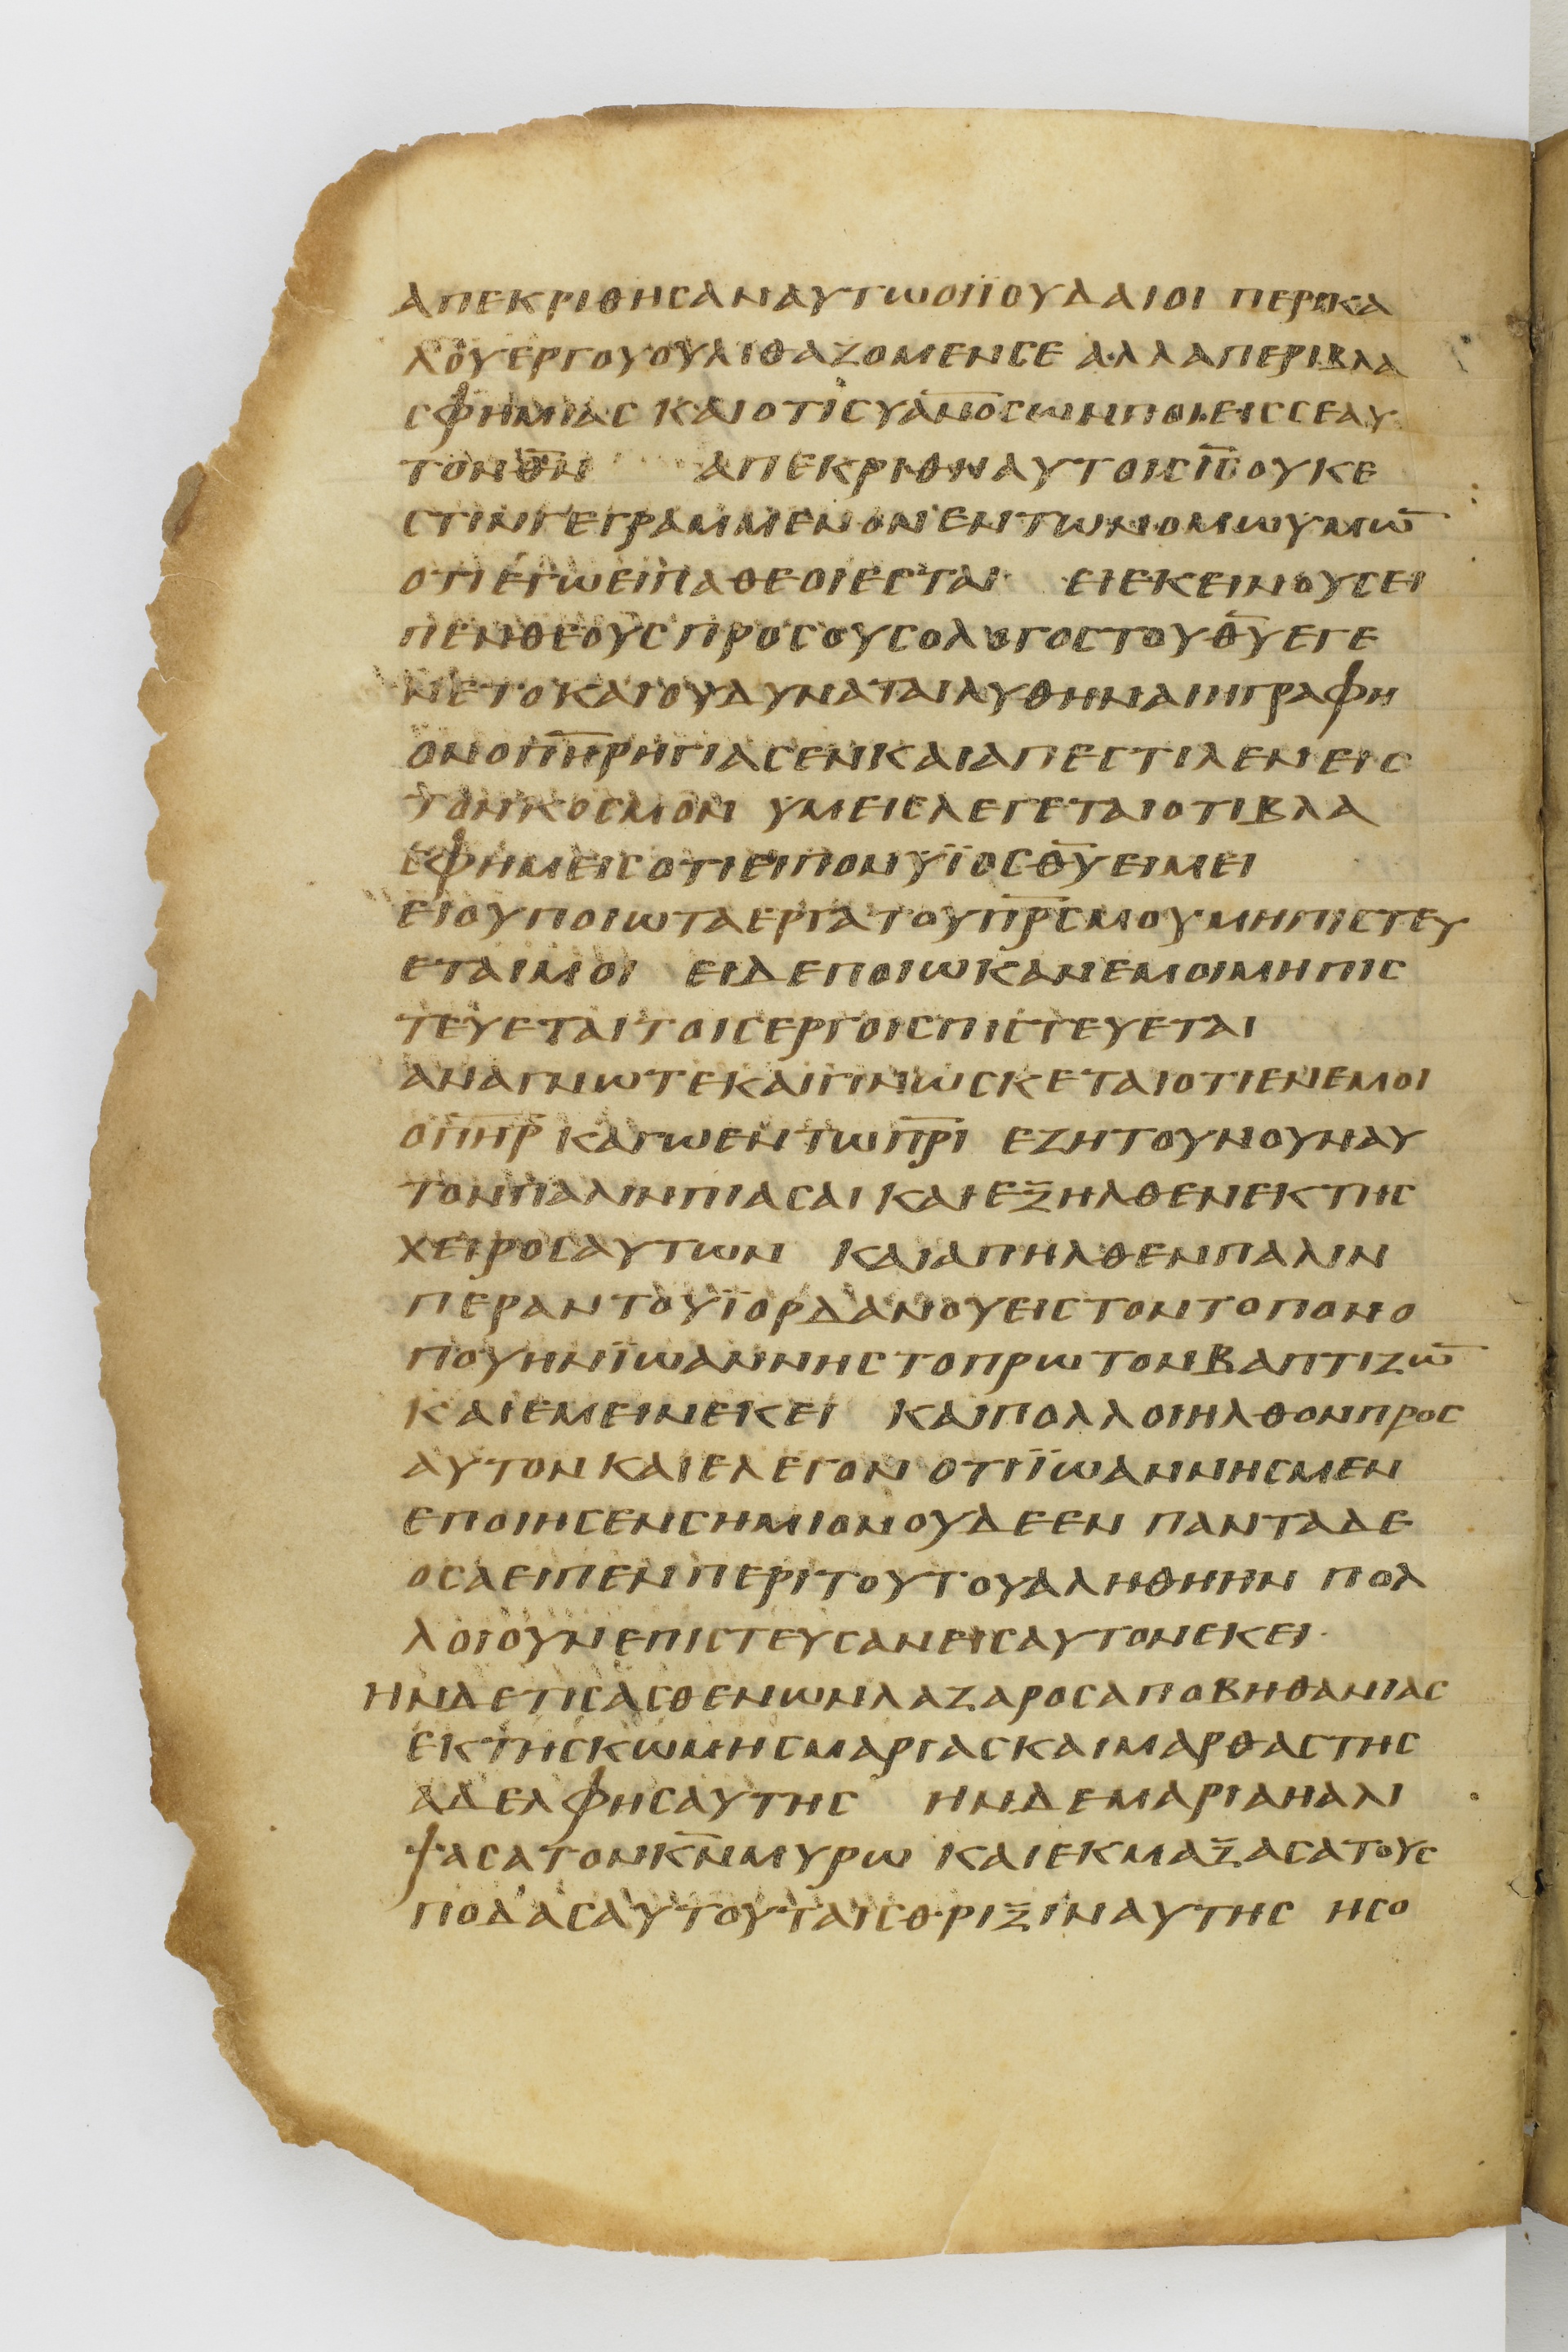 ΑΠΕΚΡΙΘΗϹΑΝΑΥΤΩΟΙΪΟΥΔΑΙΟΙ ΠΕΡΙΚΑ
ΛΟΥΕΡΓΟΥΟΥΛΙΘΑΖΟΜΕΝϹΕ ΑΛΛΑΠΕΡΙΒΛΑ
ϹΦΗΜΙΑϹ ΚΑΙΟΤΙϹΥΑ̅Ν̅Ο̅ϹΩΝΠΟΙΕΙϹϹΕΑΥ
ΤΟΝΘ̅Ν̅ ΑΠΕΚΡΙΘΗΑΥΤΟΙϹΙ̅Ϲ̅ΟΥΚΕ
ϹΤΙΝΓΕΓΡΑΜΜΕΝΟΝΕΝΤΩΝΟΜΩΥΜΩ̅
ΟΤΙΕΓΩΕΙΠΑΘΕΟΙΕϹΤΑΙ ΕΙΕΚΕΙΝΟΥϹΕΙ
ΠΕΝΘΕΟΥϹΠΡΟϹΟΥϹΟΛΟΓΟϹΤΟΥΘ̅Υ̅ΕΓΕ
ΝΕΤΟΚΑΙΟΥΔΥΝΑΤΑΙΛΥΘΗΝΑΙΗΓΡΑΦΗ
ΟΝΟΠ̅Η̅Ρ̅ΗΓΙΑϹΕΝΚΑΙΑΠΕϹΤΙΛΕΝΕΙϹ
ΤΟΝΚΟϹΜΟΝ ΥΜΕΙϹΛΕΓΕΤΑΙΟΤΙΒΛΑ
ϹΦΗΜΕΙϹΟΤΙΕΙΠΟΝΥΪΟϹΘ̅Υ̅ΕΙΜΕΙ
ΕΙΟΥΠΟΙΩΤΑΕΡΓΑΤΟΥΠ̅Ρ̅Ϲ̅ΜΟΥΜΗΠΙϹΤΕΥ
ΕΤΑΙΜΟΙ ΕΙΔΕΠΟΙΩΚΑΝΕΜΟΙΜΗΠΙϹ
ΤΕΥΕΤΑΙΤΟΙϹΕΡΓΟΙϹΠΙϹΤΕΥΕΤΑΙ
ΑΝΑΓΝΩΤΕΚΑΙΓΙΝΩϹΚΕΤΑΙΟΤΙΕΝΕΜΟΙ
ΟΠ̅Η̅Ρ̅ ΚΑΓΩΕΝΤΩΠ̅Ρ̅Ι̅ ΕΖΗΤΟΥΝΟΥΝΑΥ
ΤΟΝΠΑΛΙΝΠΙΑϹΑΙ ΚΑΙΕΞΗΛΘΕΝΕΚΤΗϹ
ΧΕΙΡΟϹΑΥΤΩΝ ΚΑΙΑΠΗΛΘΕΝΠΑΛΙΝ
ΠΕΡΑΝΤΟΥΪΟΡΔΑΝΟΥΕΙϹΤΟΝΤΟΠΟΝΟ
ΠΟΥΗΝΪΩΑΝΝΗϹΤΟΠΡΩΤΟΝΒΑΠΤΙΖΩ̅
ΚΑΙΕΜΕΙΝΕΚΕΙ ΚΑΙΠΟΛΛΟΙΗΛΘΟΝΠΡΟϹ
ΑΥΤΟΝΚΑΙΕΛΕΓΟΝ ΟΤΙΪΩΑΝΝΗϹΜΕΝ
ΕΠΟΙΗϹΕΝϹΗΜΙΟΝΟΥΔΕΕΝ ΠΑΝΤΑΔΕ
ΟϹΑΕΙΠΕΝΠΕΡΙΤΟΥΤΟΥΑΛΗΘΗΗΝ ΠΟΛ
ΛΟΙΟΥΝΕΠΙϹΤΕΥϹΑΝΕΙϹΑΥΤΟΝΕΚΕΙ
ΗΝΔΕΤΙϹΑϹΘΕΝΩΝΛΑΖΑΡΟϹΑΠΟΒΗΘΑΝΙΑϹ
ΕΚΤΗϹΚΩΜΗϹΜΑΡΙΑϹΚΑΙΜΑΡΘΑϹΤΗϹ
ΑΔΕΛΦΗϹΑΥΤΗϹ ΗΝΔΕΜΑΡΙΑΗΑΛΙ
ΨΑϹΑΤΟΝΚ̅Ν̅ΜΥΡΩ ΚΑΙΕΚΜΑΞΑϹΑΤΟΥϹ
ΠΟΔΑϹΑΥΤΟΥΤΑΙϹΘΡΙΞΙΝΑΥΤΗϹ ΗϹΟ